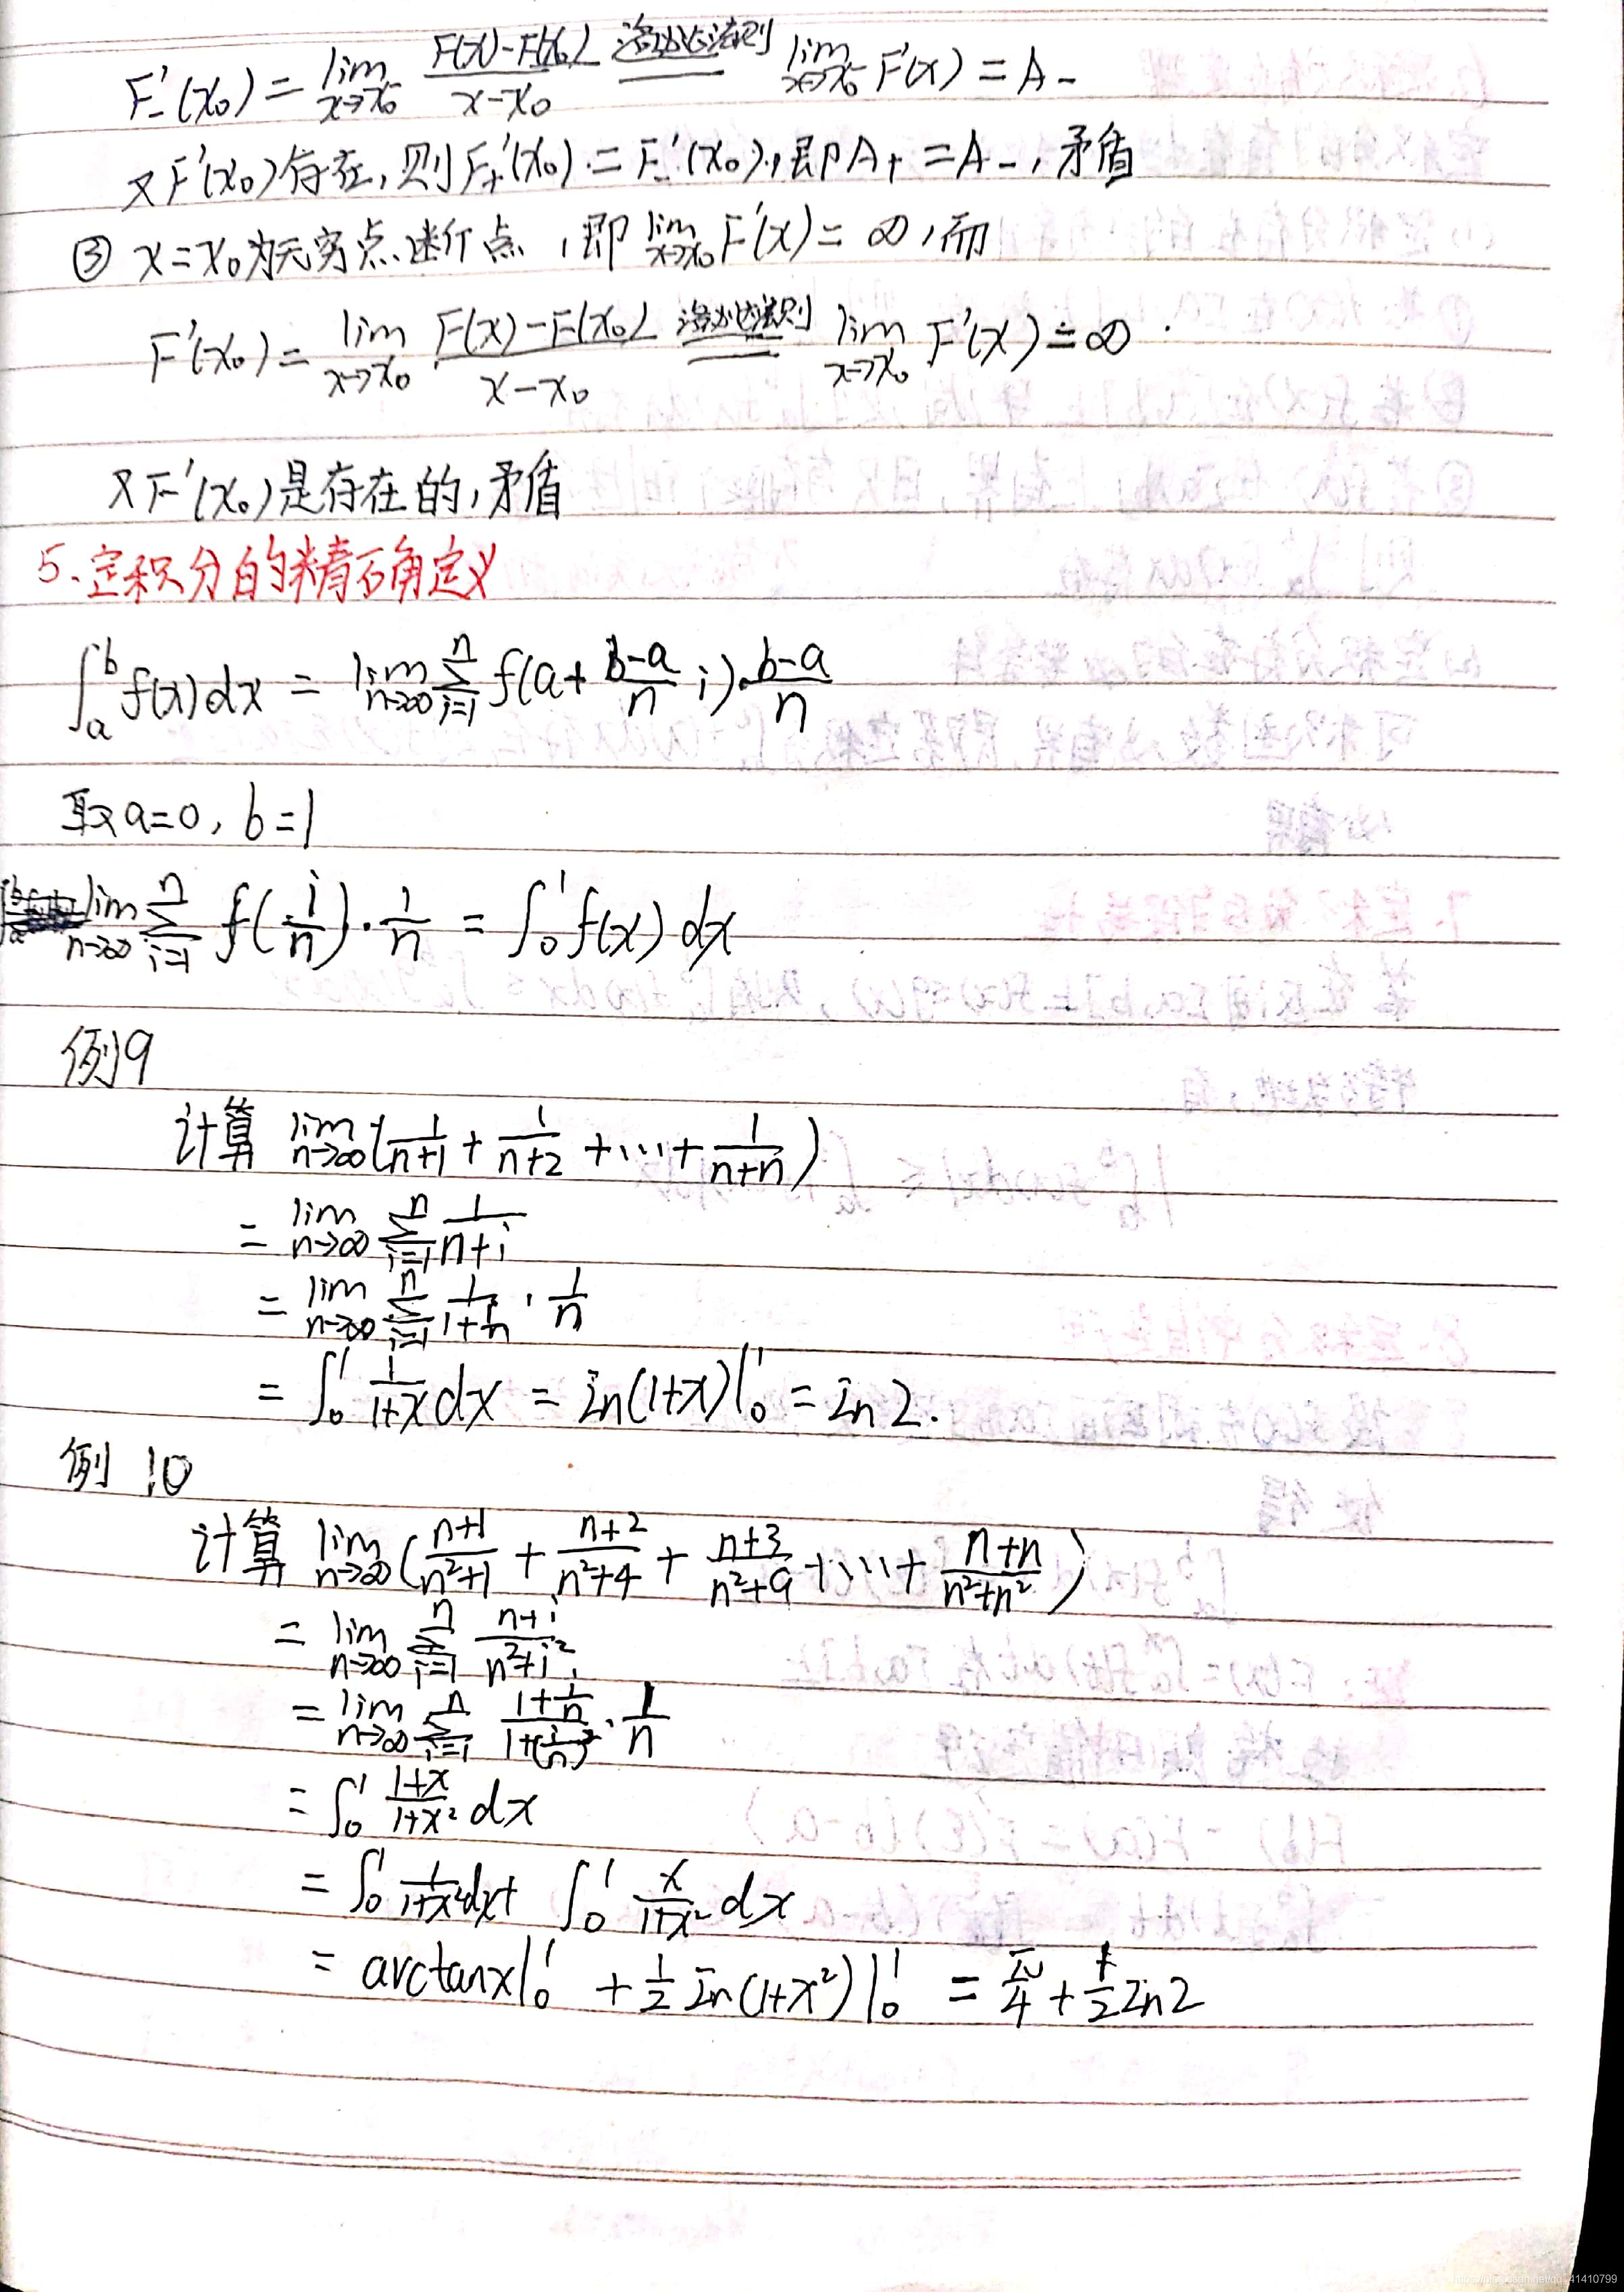 F₋'(x₀) = lim_{x→x₀⁻} (F(x)-F(x₀))/(x-x₀) 洛必达法则 lim_{x→x₀⁻} F'(x) = A₋
又F'(x₀)存在,则F₊'(x₀) = F₋'(x₀),即A₊ = A₋,矛盾
③ x=x₀为无穷点迷断点,即 lim_{x→x₀} F'(x) = ∞,而
F'(x₀) = lim_{x→x₀} (F(x)-F(x₀))/(x-x₀) 洛必达法则 lim_{x→x₀} F'(x) = ∞
又F'(x₀)是存在的,矛盾
5、定积分的精确定义
∫_a^b f(x)dx = lim_{n→∞} Σ_{i=1}^n f(a+ (b-a)/n i)·(b-a)/n
取a=0, b=1
lim_{n→∞} Σ_{i=1}^n f(i/n)·1/n = ∫_0^1 f(x)dx
例9
计算 lim_{n→∞} (1/(n+1) + 1/(n+2) + ... + 1/(n+n))
= lim_{n→∞} Σ_{i=1}^n 1/(n+i)
= lim_{n→∞} Σ_{i=1}^n 1/(1+i/n) · 1/n
= ∫_0^1 1/(1+x) dx = ln(1+x)|_0^1 = ln2.
例10
计算 lim_{n→∞} ((n+1)/(n²+1) + (n+2)/(n²+4) + (n+3)/(n²+9) + ... + (n+n)/(n²+n²))
= lim_{n→∞} Σ_{i=1}^n (n+i)/(n²+i²)
= lim_{n→∞} Σ_{i=1}^n (1+i/n)/(1+(i/n)²) · 1/n
= ∫_0^1 (1+x)/(1+x²) dx
= ∫_0^1 1/(1+x²) dx + ∫_0^1 x/(1+x²) dx
= arctanx|_0^1 + 1/2 ln(1+x²)|_0^1 = π/4 + 1/2 ln2